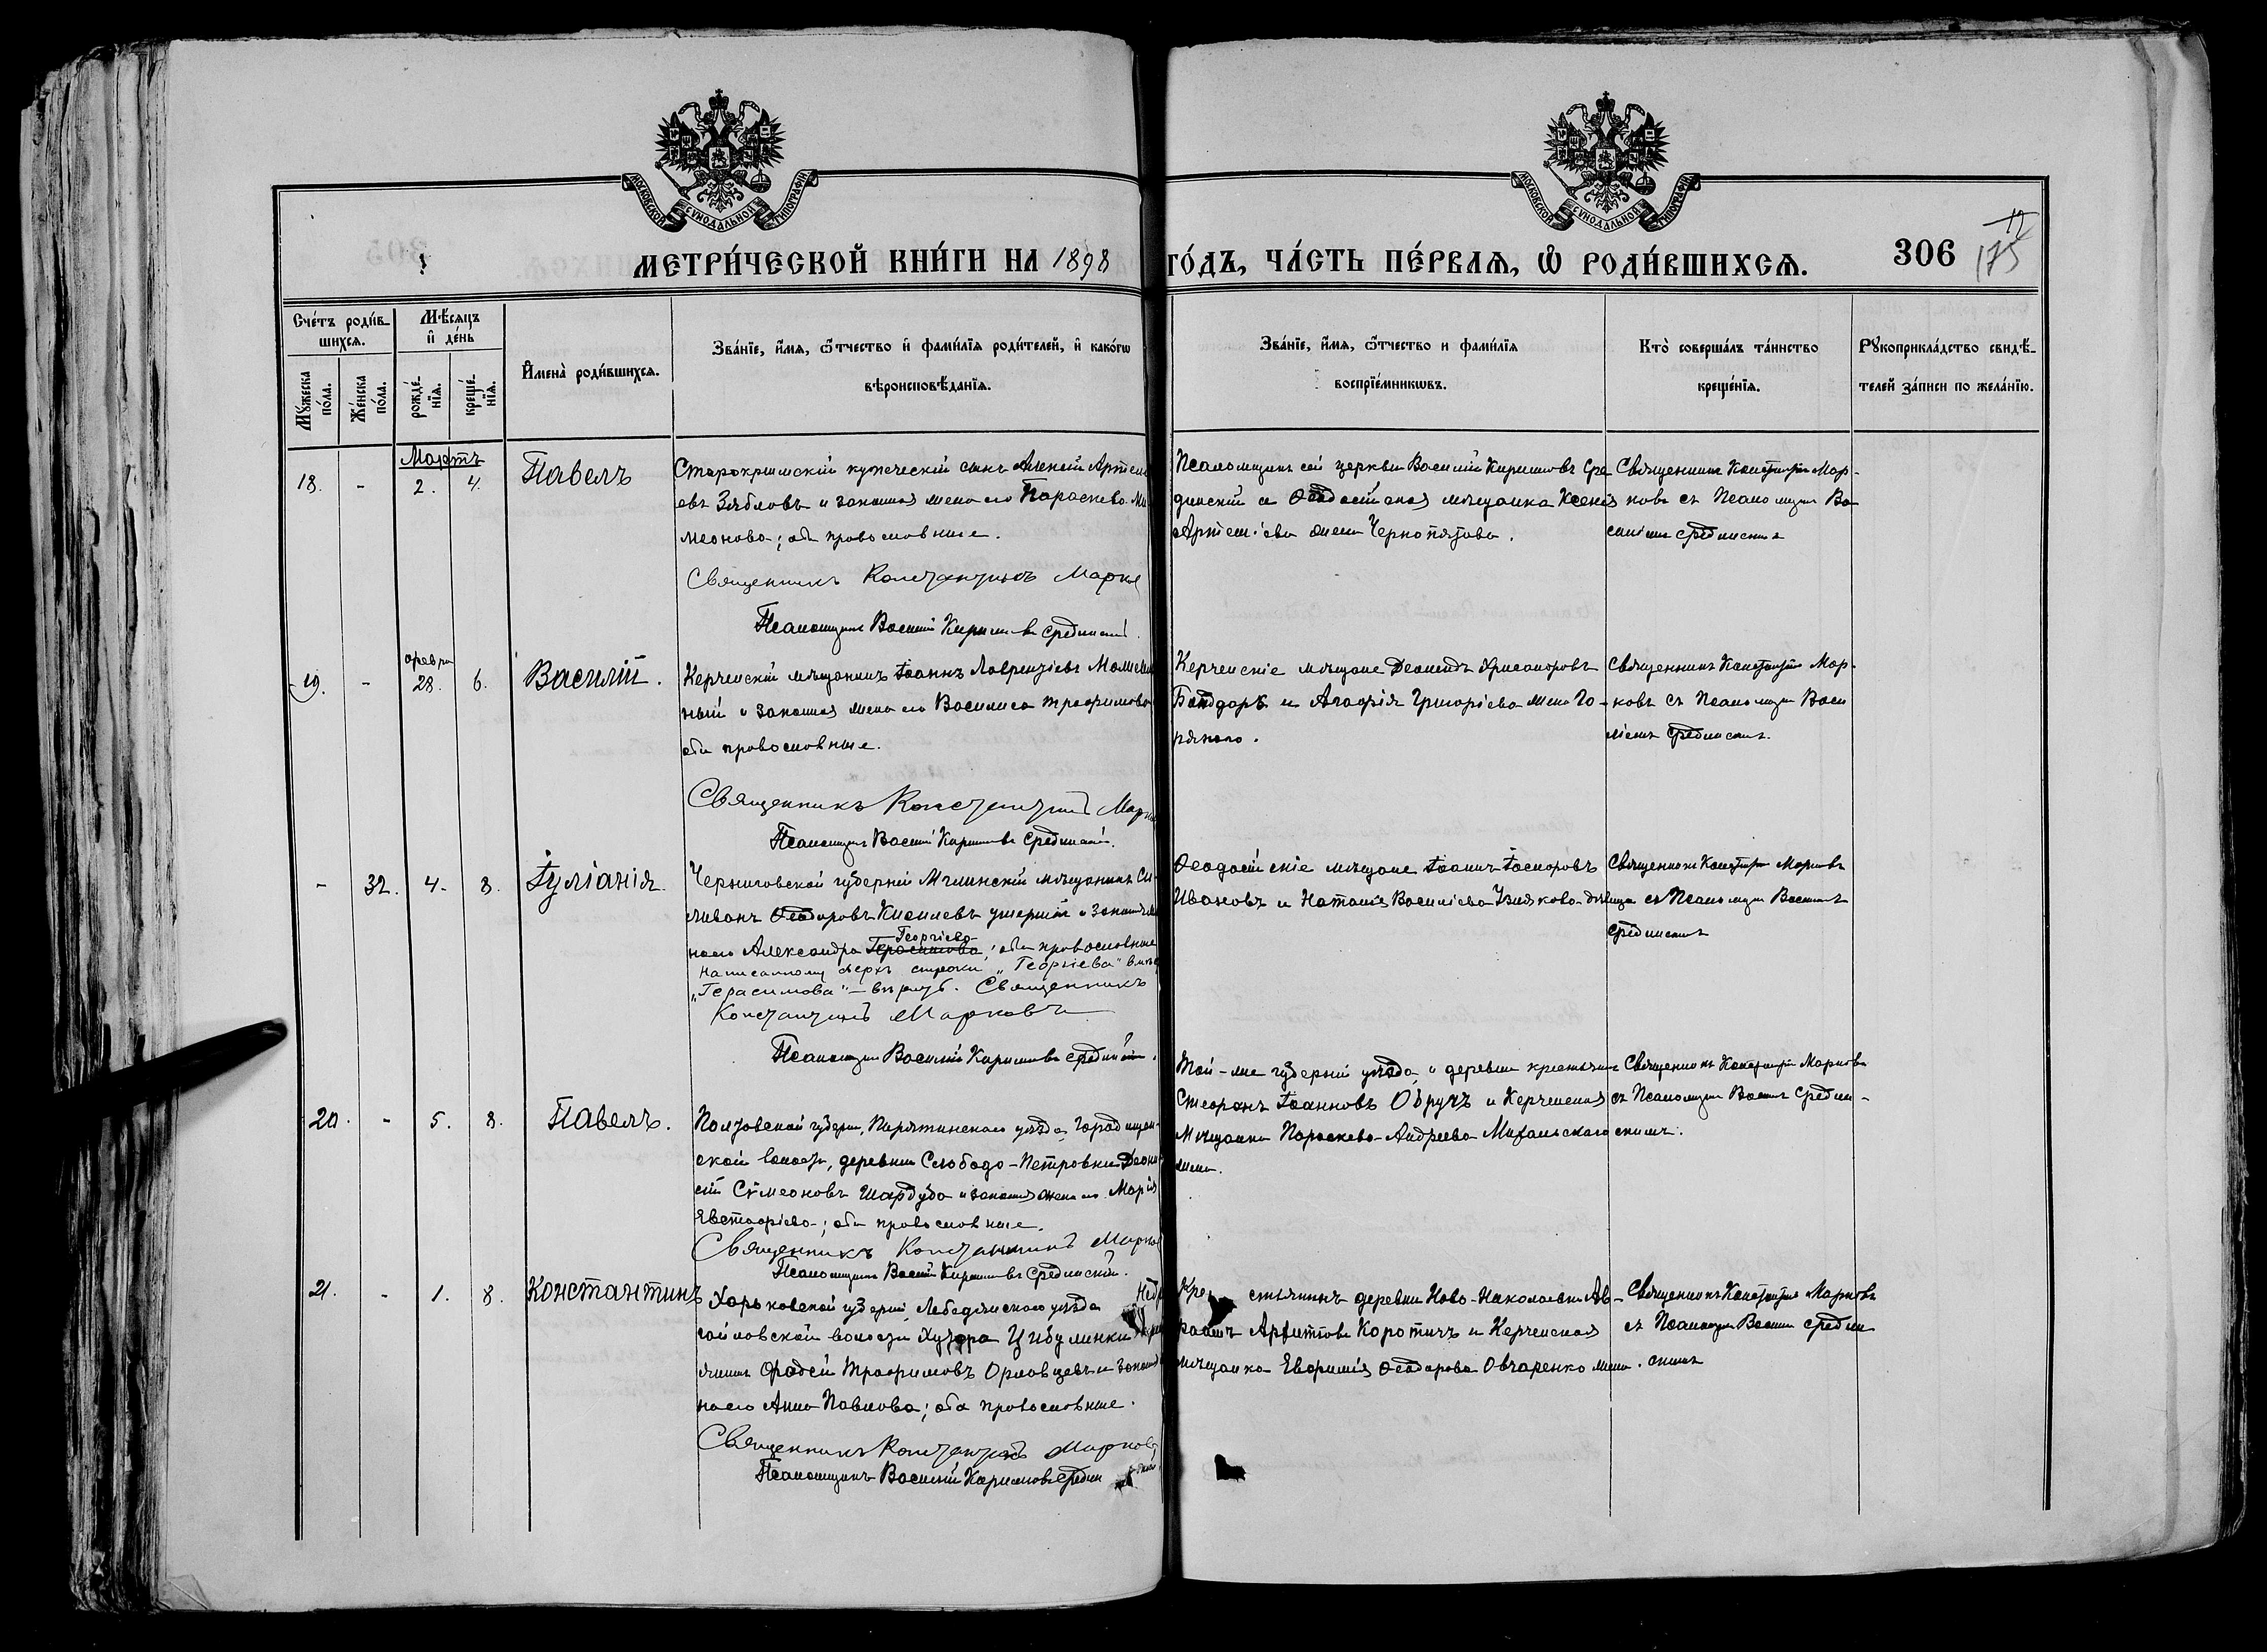 МОСКОВСКОЙ СѴНОДАЛЬНОЙ ТИПОГРАФІИ
МОСКОВСКОЙ СѴНОДАЛЬНОЙ ТИПОГРАФІИ
МЕТРИ́ЧЕСКОЙ КНИ́ГИ НА 1898 ГО́ДЪ, ЧА́СТЬ ПЕ́РВАѦ, Ѽ РОДИ́ВШИХСѦ.
306
175
Сче́тъ роди́в-
шихсѧ.
Мꙋ́жеска по́ла.
Же́нска по́ла.
Мѣ́сѧцъ и҆ де́нь
рожде́-нїѧ.
креще́-нїѧ.
И҆мена̀ роди́вшихсѧ.
Зва́нїе, и҆́мѧ, ѻ҆́тчество и҆ фами́лїѧ роди́телей, и҆ како́гѡ
вѣроисповѣ́данїѧ.
Зва́нїе, и҆́мѧ, ѻ҆́тчество и фами́лїѧ
воспрїе́мникѡвъ.
Кто̀ соверша́лъ та́инство
креще́нїѧ.
Рꙋкоприкла́дство свидѣ́-
телей за́писи по жела́нїю.
Мартъ
18. - 2. 4. Павелъ
Старокрымскій купеческій сынъ Алексій Артемі
евъ Зябловъ и законная жена его Параскева
меонова; оба православные.
Священникъ Константинъ Марков
Псаломщикъ Василій Кириловъ Срединскій.
Псаломщикъ сей церкви Василій Кириловъ Сре
динскій и Ѳеодосійская мѣщанка Ксенія
Артеміева жена
Священникъ Константинъ Мар-
ковъ съ Псаломщик Ва
силіемъ Срединскимъ
Февра
19. - 28. 6. Василій.
Керченскій мѣщанинъ Іоаннъ Лаврентіевъ
ный и законная жена его Василиса Трофимова
оба православные.
Священникъ Константинъ Марков
Псаломщикъ Василій Кириловъ Срединскій.
Керченскіе мѣщане Леонидъ
Бондарь и Агафія Григоріева жена Го-
ряного.
Священникъ Константинъ Мар-
ковъ съ Псаломщик Васи
ліемъ Срединскимъ.
- 32. 4. 8. Іуліанія
Черниговской губерніи Мглинскій мѣщанинъ Си-
ливанъ Ѳеодоровъ Киселевъ умершій и законная же
Георгіева
на его Александра Герасимова; оба православные
Написанному сверхъ строки „Георгіева" вмѣс
„Герасимова" — вѣрить. Священникъ
Константинъ Марковъ
Псаломщикъ Василій Кириловъ Срединскій.
Ѳеодосійскіе мѣщане Іоаннъ
Ивановъ и Наталія Василіева дѣвица
Священникъ Константинъ Марковъ
съ Псаломщик Василіемъ
Срединскимъ
20. - 5. 8. Павелъ.
Полтавской губерн, Пирятинскаго уѣзда, Городищен-
ской волости, деревни Слободо-Петровки Діони
сій Сѵмеоновъ Шардуба и законная жена его Марія
Евстафіева; оба православные.
Священникъ Константинъ Марков
Псаломщикъ Василій Кириловъ Срединскій.
Той-же губерніи уѣзда и деревни крестьянинъ
Стефанъ Іоанновъ Обручъ и Керченская
Мѣщанка Параскева Андреева Михальскаго
жена.
Священникъ Константинъ Марковъ
съ Псаломщик Василіемъ Средин-
скимъ.
21. - 1. 8. Константинъ
Харьковской губерніи, Лебединскаго уѣзда
волости Хутора Цибуленки
янинъ Фадей Трофимовъ и законная
на его Анна Павлова; оба православные.
Священникъ Константинъ Марковъ
Псаломщикъ Василій Кириловъ Средин
Кре стьянинъ деревни Ново-Николаевки Ав-
раамъ Коротичъ и Керченская
мѣщанка Евфимія Ѳеодорова Овчаренко жена.
Священникъ Константинъ Марковъ
съ Псаломщик Василіемъ Средин
скимъ